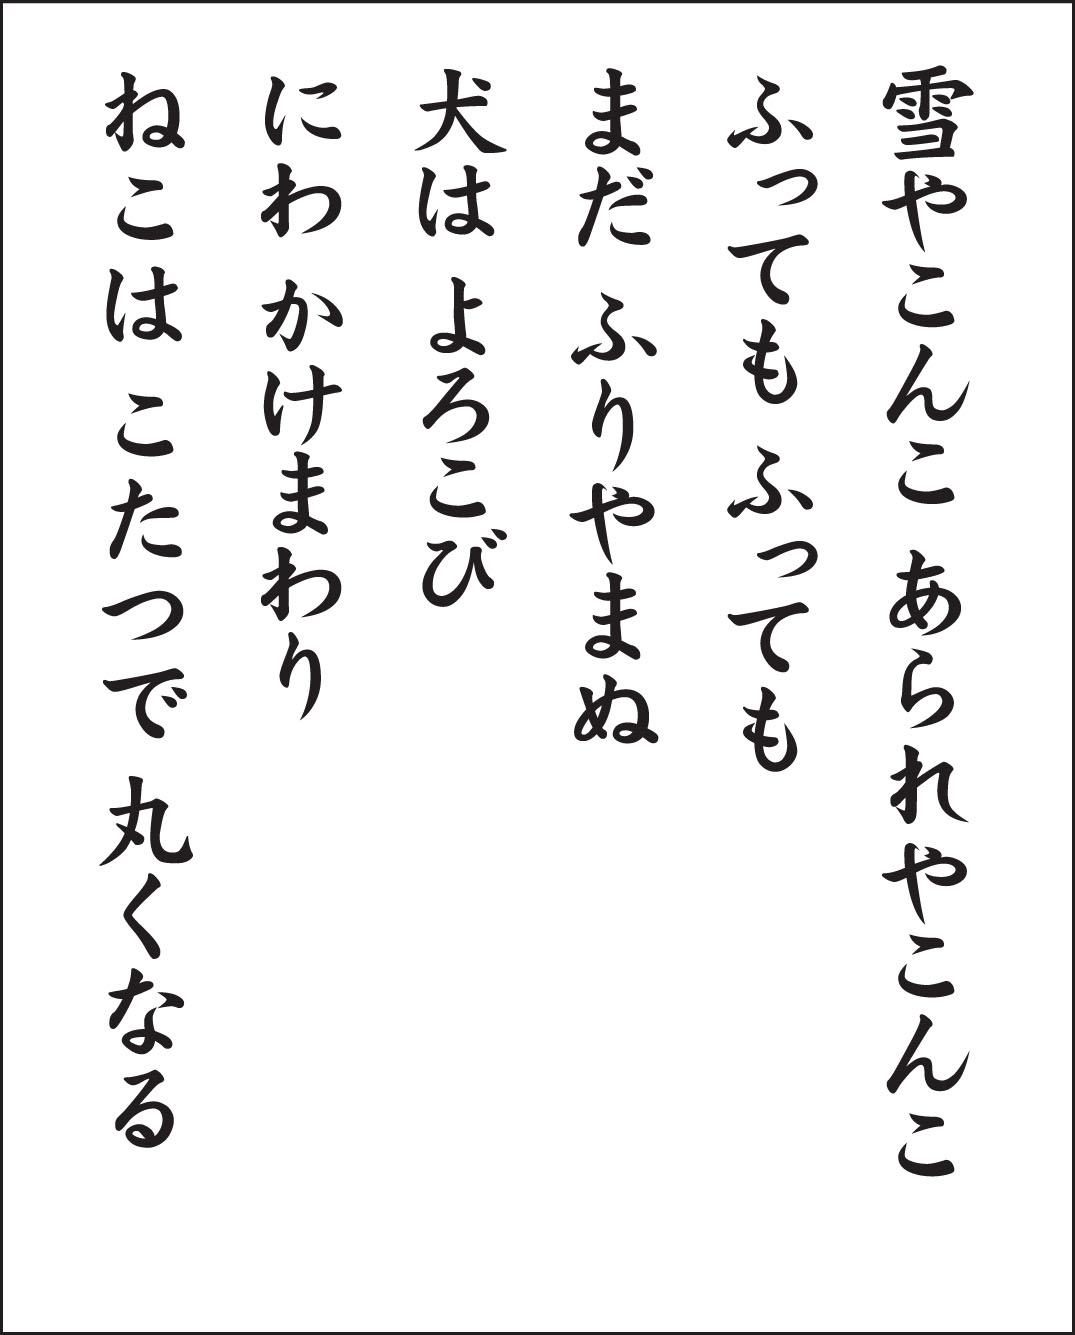 雪やこんこ あられやこんこ
ふっても ふっても
まだ ふりやまぬ
犬は よろこび
にわ かけまわり
ねこは こたつで 丸くなる